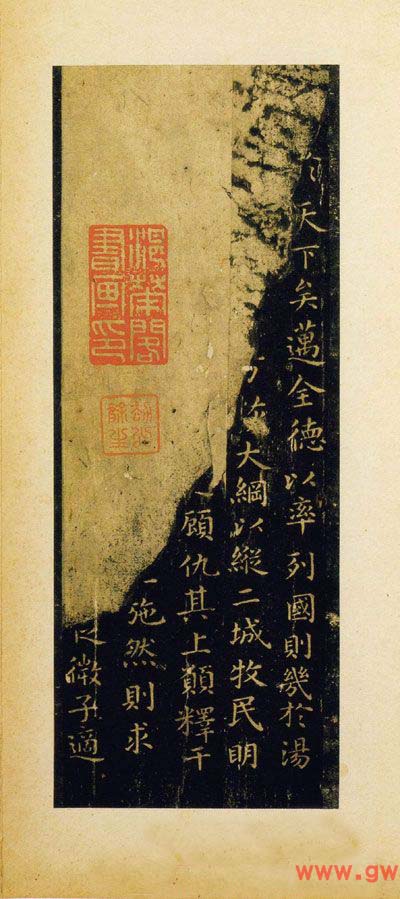 天下矣邁全德以率列國則幾於湯
大綱以縱二城牧民明
顧仇其上願釋干
施然則求
微子適
閣
書畫印
www.gw